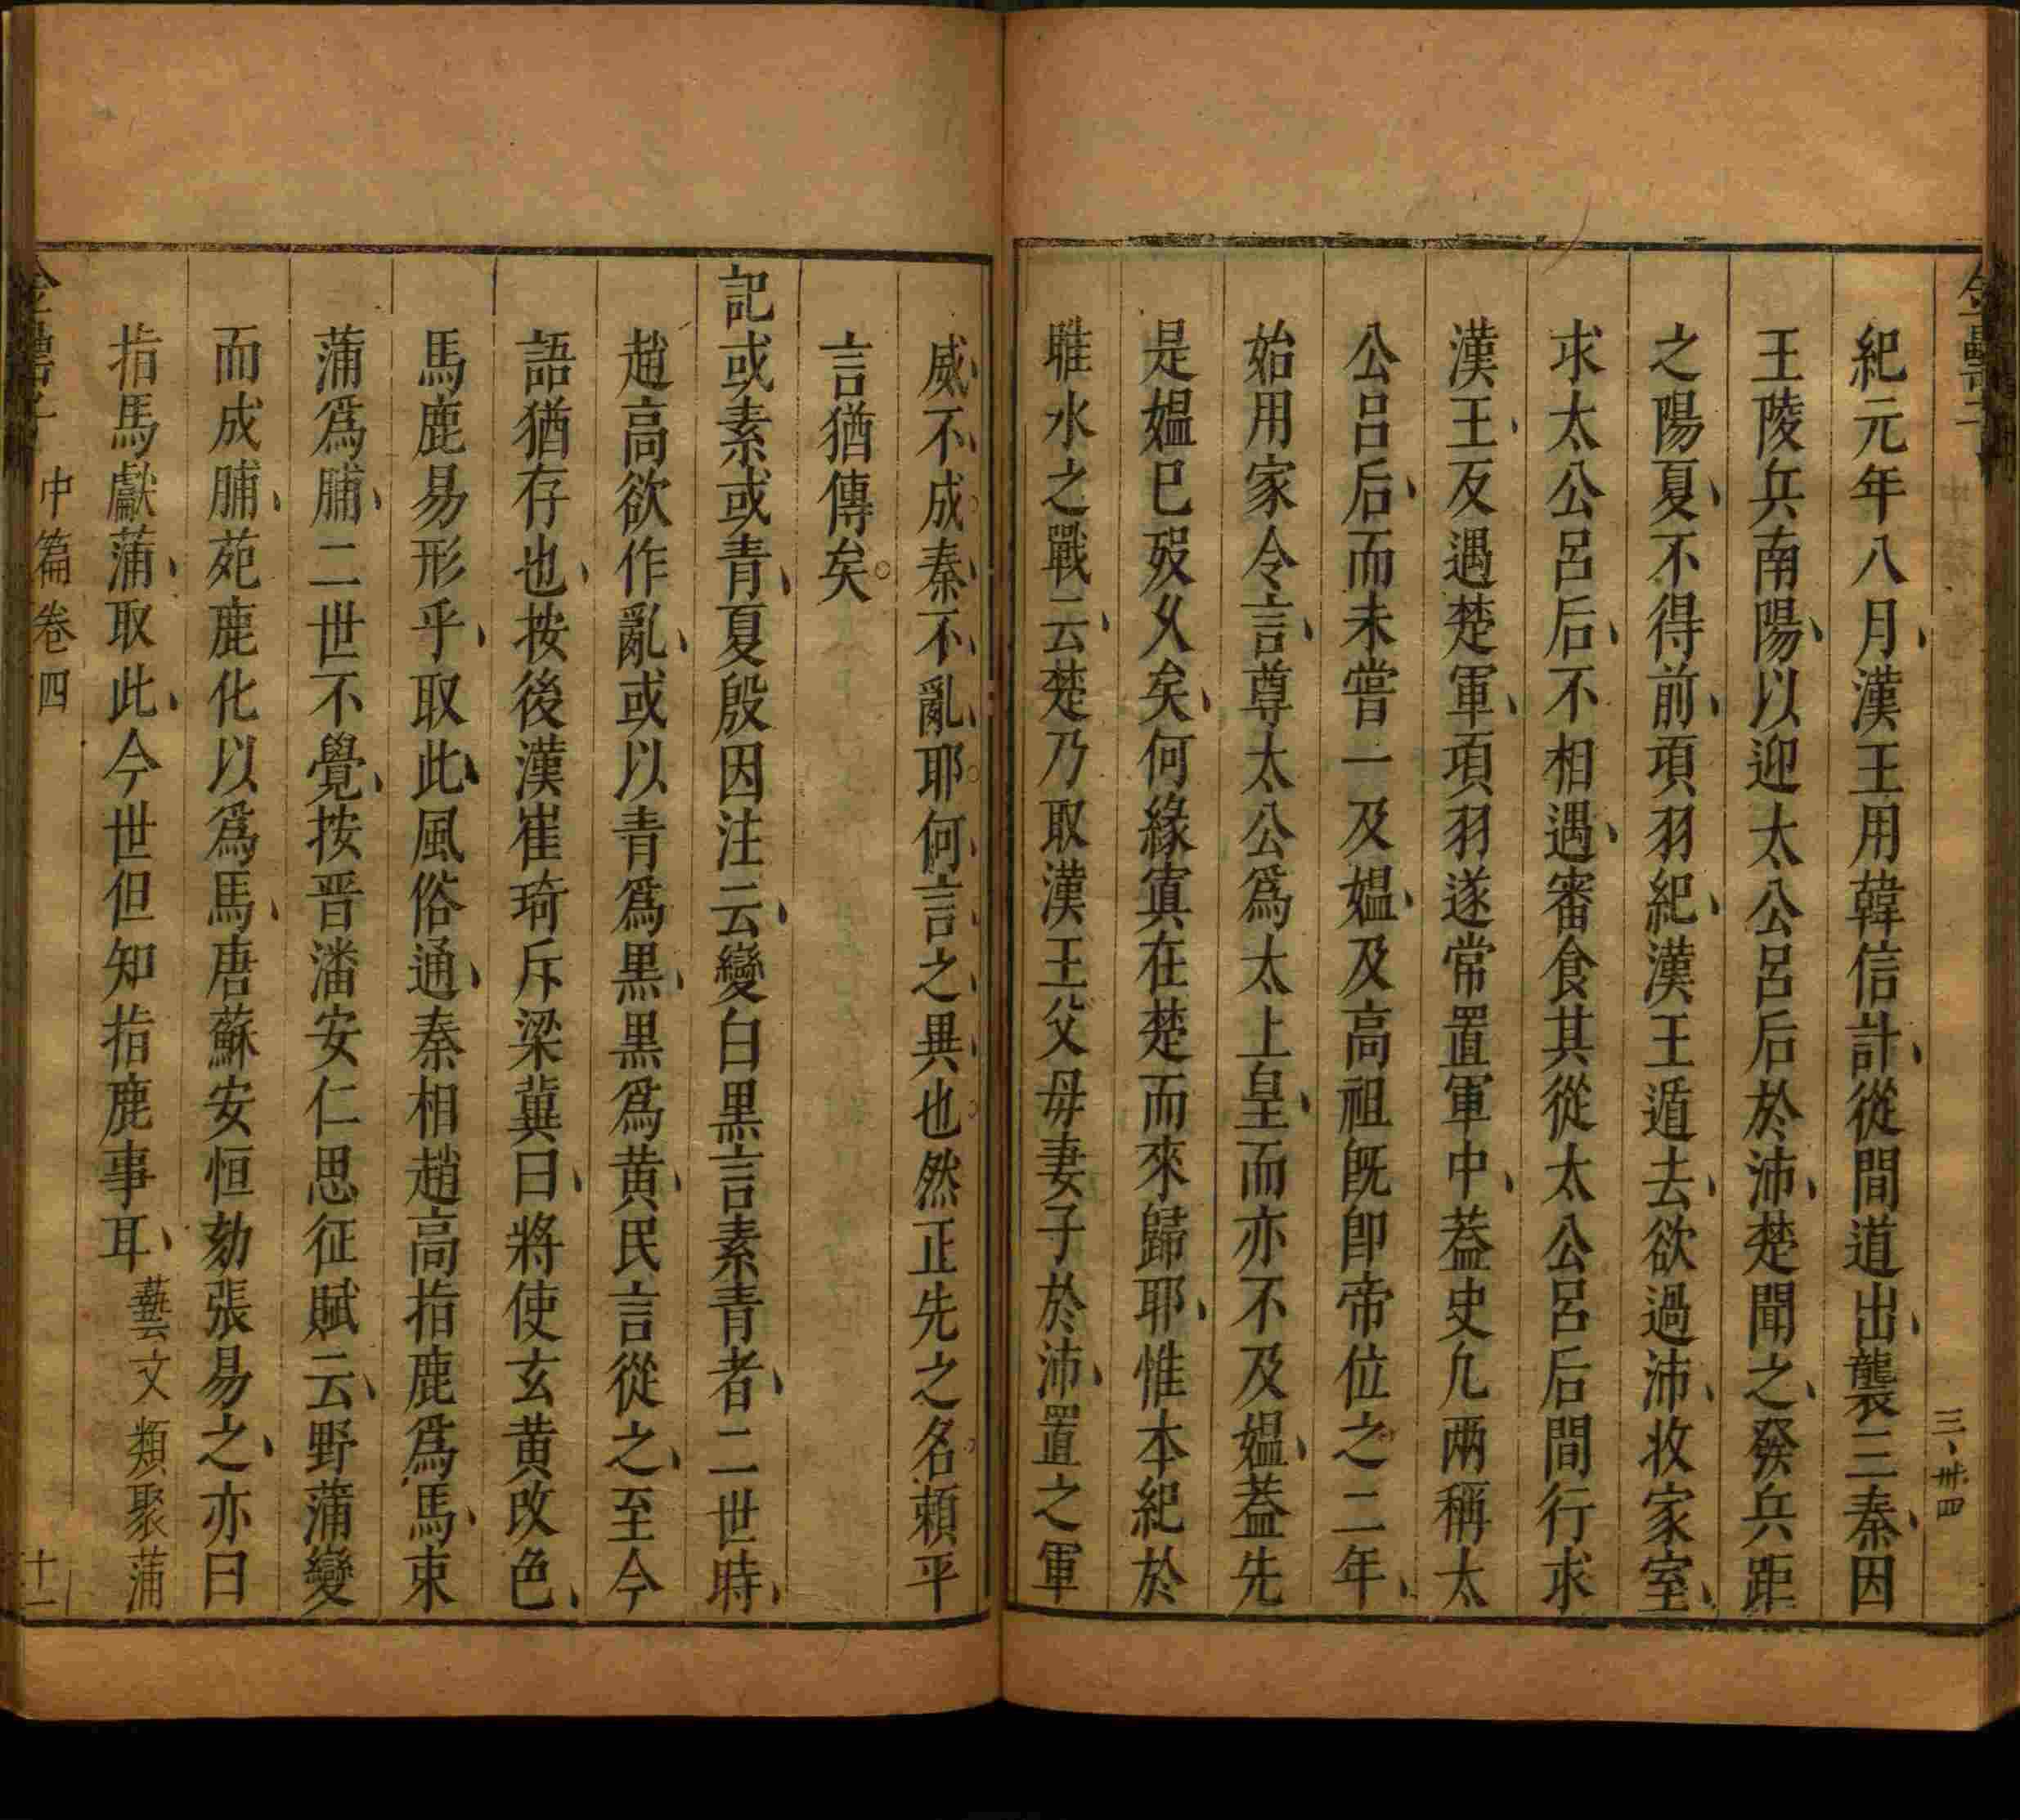 紀元年八月漢王用韓信計從間道出襲三秦因
王陵兵南陽以迎太公呂后於沛楚聞之發兵距
之陽夏不得前項羽紀漢王遁去欲過沛收家室
求太公呂后不相遇審食其從太公呂后間行求
漢王反遇楚軍項羽遂常置軍中葢史凢兩稱太
公呂后而未嘗一及媼及高祖既卽帝位之二年
始用家令言尊太公爲太上皇而亦不及媼葢先
是媼巳歿乆矣何緣寘在楚而來歸耶惟本紀於
睢水之戰云楚乃取漢王父母妻子於沛置之軍
威不成秦不亂耶何言之異也然正先之名頼平
言猶傳矣
記或素或青夏殷因注云變白黒言素青者二世時
趙高欲作亂或以青爲黒黒爲黃民言從之至今
語猶存也按後漢崔琦斥梁冀曰將使玄黃改色
馬鹿易形乎取此風俗通秦相趙高指鹿爲馬束
蒲爲脯二世不覺按晋潘安仁思征賦云野蒲變
而成脯苑鹿化以爲馬唐蘇安恒劾張易之亦曰
指馬獻蒲取此今世但知指鹿事耳藝文類聚蒲
中篇卷四
十一